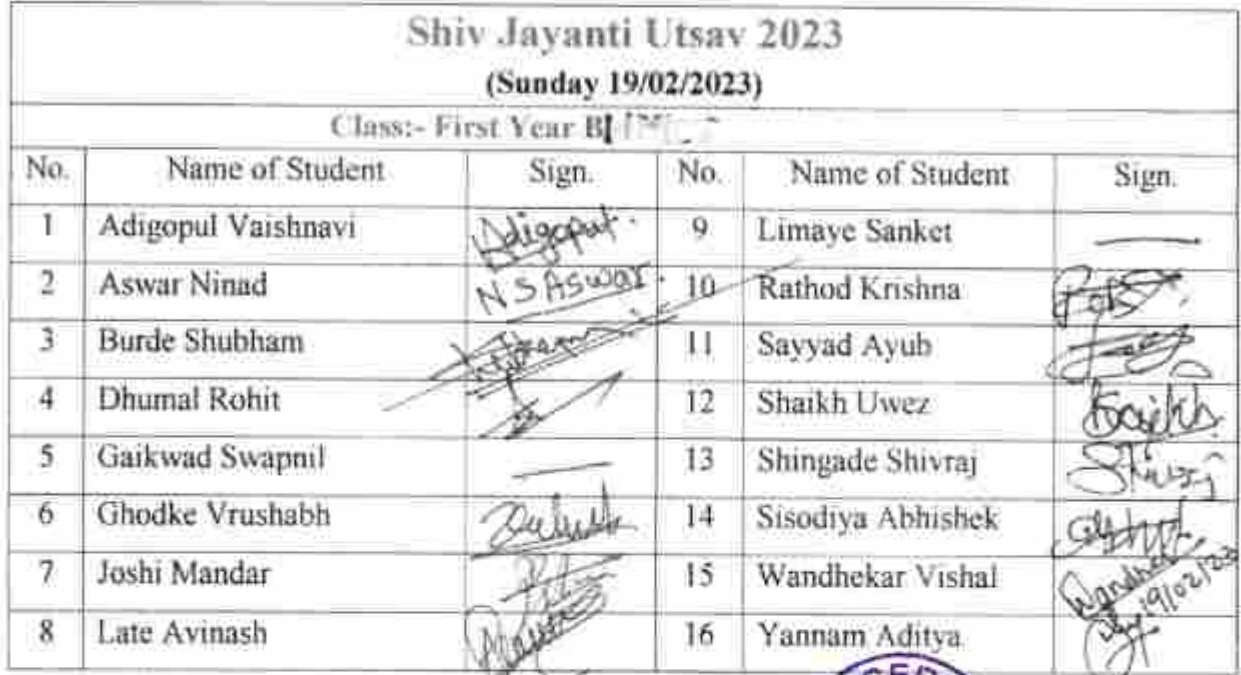 Shiv Jayanti Utsav 2023
(Sunday 19/02/2023)
Class:- First Year
No. Name of Student Sign. No. Name of Student Sign.
1 Adigopul Vaishnavi Adigopul. 9 Limaye Sanket —
2 Aswar Ninad N S Aswar. 10 Rathod Krishna
3 Burde Shubham 11 Sayyad Ayub
4 Dhumal Rohit 12 Shaikh Uwez Shaikh
5 Gaikwad Swapnil — 13 Shingade Shivraj Shivraj
6 Ghodke Vrushabh 14 Sisodiya Abhishek
7 Joshi Mandar 15 Wandhekar Vishal Wandhekar 19/02/23
8 Late Avinash 16 Yannam Aditya